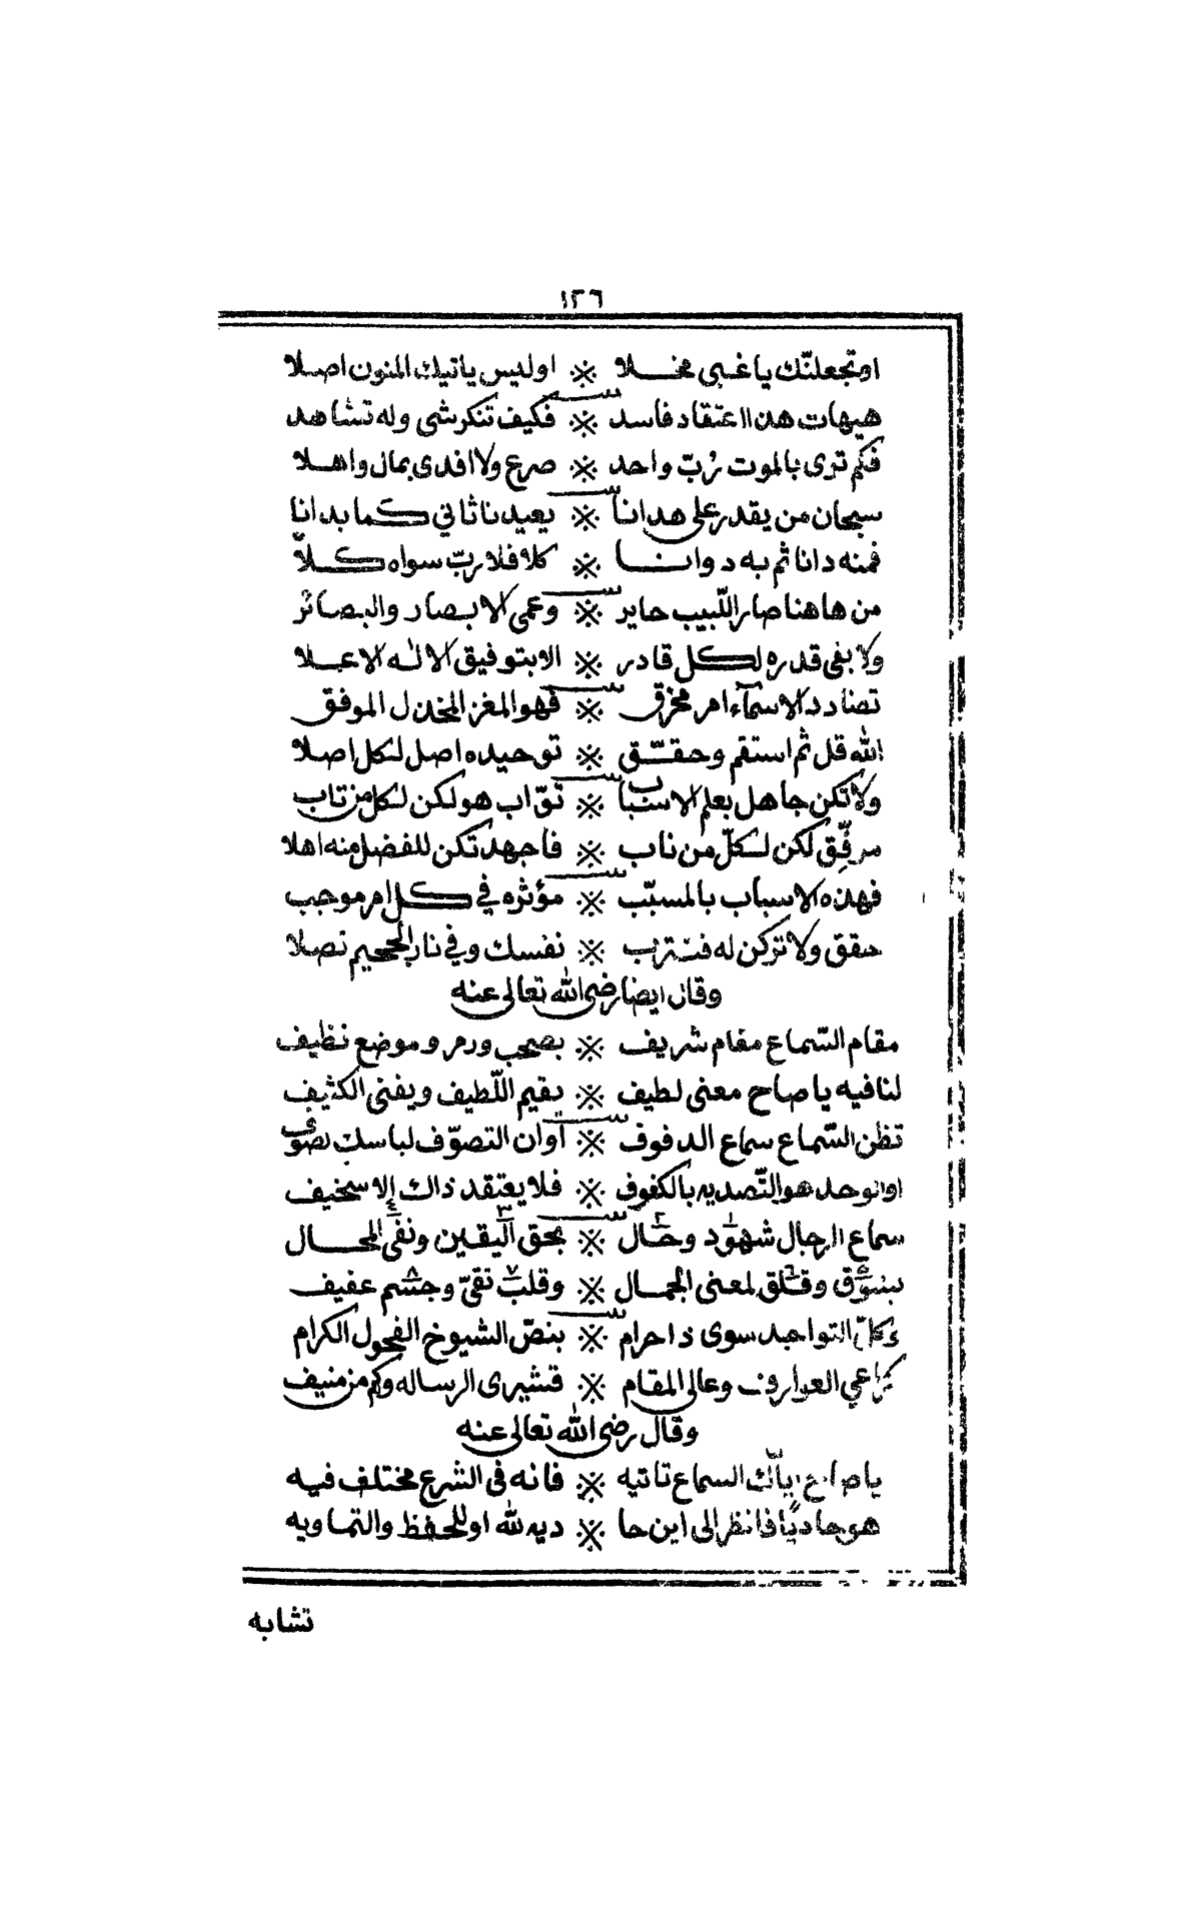 ١٢٦
او تجعلنّك يا غبى مخلا ※ او ليس ياتيك المنون اصلا
هيهات هذا اعتقاد فاسد ※ فكيف تنكر شى وله تشاهد
فكم ترى بالموت رُبّ واحد ※ صرع ولا افدى بمال واهلا
سبحان من يقدر على هدانا ※ يعيدنا ثاني كما بدانا
فمنه دانا ثم به دوانا ※ كلا فلا ربّ سواه كلاّ
من هاهنا صار اللّبيب حاير ※ وعمى الابصار والبصائر
ولا بقى قدره لكل قادر ※ الا بتوفيق الاله الاعلا
تضادد الاسمآء امر مخرق ※ فهو المعز المخذل الموفق
الله قل ثم استقم وحقّق ※ توحيده اصل لكل اصلا
ولا تكن جاهل بعلم الاسباب ※ توّاب هو لكن لكل من تاب
مرفّق لكن لكلّ من ناب ※ فاجهد تكن للفضل منه اهلا
فهذه الاسباب بالمسبّب ※ مؤثره في كل امر موجب
حقق ولا تركن له فتترب ※ نفسك وفي نار الجحيم تصلا
وقال ايضا رضى الله تعالى عنه
مقام السّماع مقام شريف ※ بصحب ورمر وموضع نظيف
لنا فيه يا صاح معنى لطيف ※ يقيم اللّطيف ويفنى الكثيف
تظن السّماع سماع الدفوف ※ اوان التصوّف لباسك بصوف
او توحد هو التّصديه بالكفوف ※ فلا يعتقد ذاك إلا سخيف
سماع الرجال شهود وحال ※ بحق اليقين ونفى المحال
بشوق وقلق لمعنى الجمال ※ وقلب تقىّ وجسم عفيف
وكلّ التواجد سوى ذا حرام ※ بنصّ الشيوخ الفحول الكرام
العوارف وعالى المقام ※ قشيرى الرساله وكم من منيف
وقال رضى الله تعالى عنه
يا صاح ايّاك السماع تاتيه ※ فانه فى الشرع مختلف فيه
هو حاديًا فانظر الى اين حا ※ ديه لله او للحفظ والتماويه
تشابه